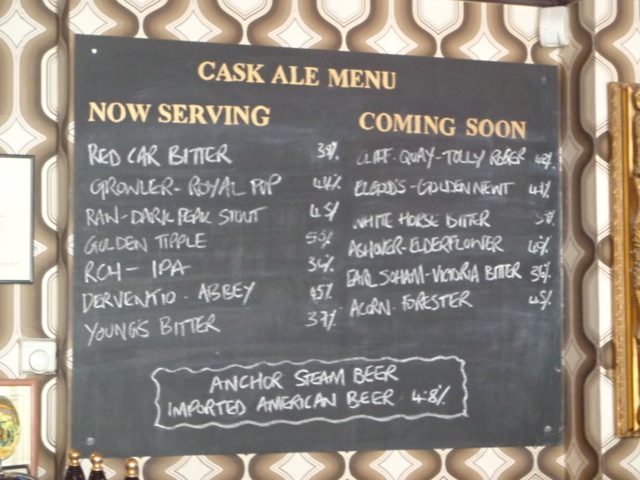 CASK ALE MENU
NOW SERVING
RED CAR BITTER
GROWLER - ROYAL POP
DARK PEAK STOUT
GOLDEN TIPPLE
RCH - IPA
DERVENTIO - ABBEY 4.5%
YOUNG'S BITTER 3.7%
COMING SOON
CLIFF QUAY - TOLLY ROGER
ELGOOD'S - GOLDEN NEWT
WHITE HORSE BITTER
ASHOVER - ELDERFLOWER
EARL SOHAM - VICTORIA BITTER 3.6%
ACORN - FORESTER 4.5%
ANCHOR STEAM BEER
IMPORTED AMERICAN BEER 4.8%